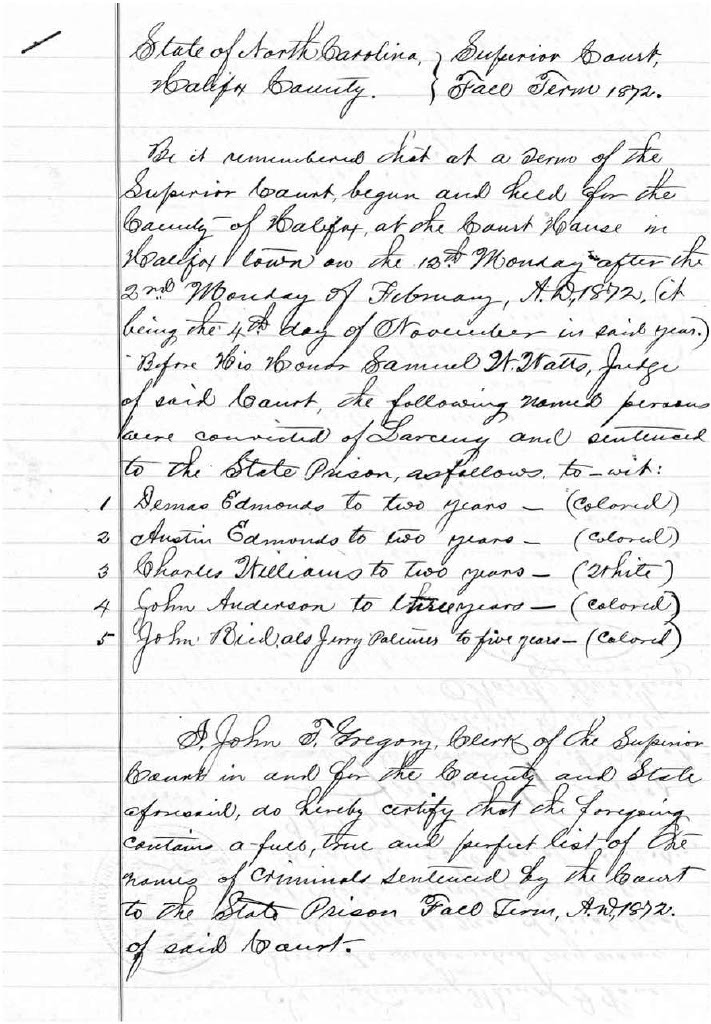 State of North Carolina, } Superior Court,
Halifax County. } Fall Term 1872.
Be it remembered that at a Term of the
Superior Court, begun and held for the
County of Halifax, at the Court House in
Halifax town on the 12th Monday after the
2nd Monday of February, A.D, 1872, (it
being the 4th day of November in said year.)
Before His Honor Samuel W. Watts, Judge
of said Court, the following named persons
were convicted of Larceny and sentenced
to the State Prison, as follows, to-wit:
1 Demas Edmonds to two years - (Colored)
2 Austin Edmonds to two years - (Colored)
3 Charles Williams to two years - (White)
4 John Anderson to three years - (Colored)
5 John Ried, als Jerry to five years - (Colored)
I, John T. Gregory, Clerk of the Superior
Court in and for the County and State
aforesaid, do hereby certify that the foregoing
contains a full, true and perfect list of the
names of Criminals sentenced by the Court
to the State Prison Fall Term, A.D, 1872.
of said Court.